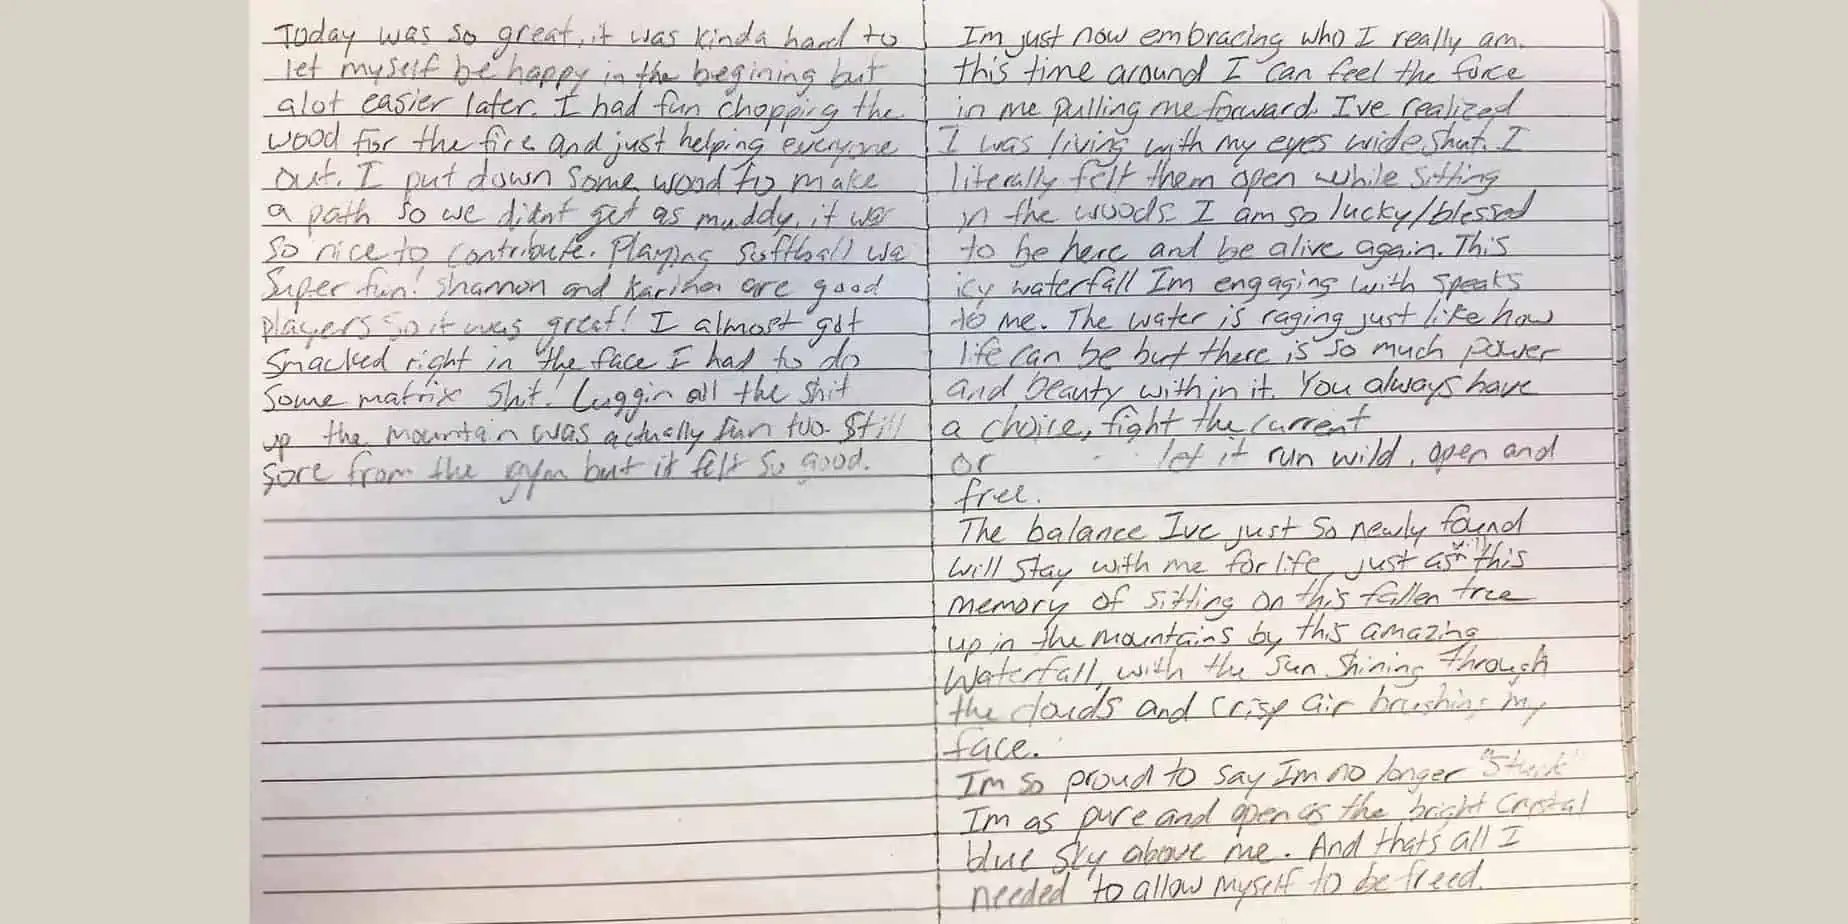 Today was so great, it was kinda hard to
let myself be happy in the begining but
alot easier later. I had fun chopping the
wood for the fire and just helping everyone
out. I put down some wood to make
a path so we didnt get as muddy, it was
so nice to contribute. Playing softball wa
super fun! Shannon and Karina are good
players so it was great! I almost got
smacked right in the face I had to do
some matrix shit! Luggin all the shit
up the mountain was actually fun too. Still
sore from the gym but it felt so good.
Im just now embracing who I really am.
this time around I can feel the force
in me pulling me forward. I've realized
I was living with my eyes wide shut. I
literally felt them open while sitting
in the woods. I am so lucky/blessed
to be here and be alive again. This
icy waterfall Im engaging with speaks
to me. The water is raging just like how
life can be but there is so much power
and beauty within it. You always have
a choice, fight the current
or let it run wild, open and
free.
The balance Ive just so newly found
will stay with me for life, just as will this
memory of sitting on this fallen tree
up in the mountains by this amazing
waterfall, with the sun shining through
the clouds and crisp air brushing my
face.
Im so proud to say Im no longer "Stuck"
Im as pure and open as the bright crystal
blue sky above me. And thats all I
needed to allow myself to be freed.